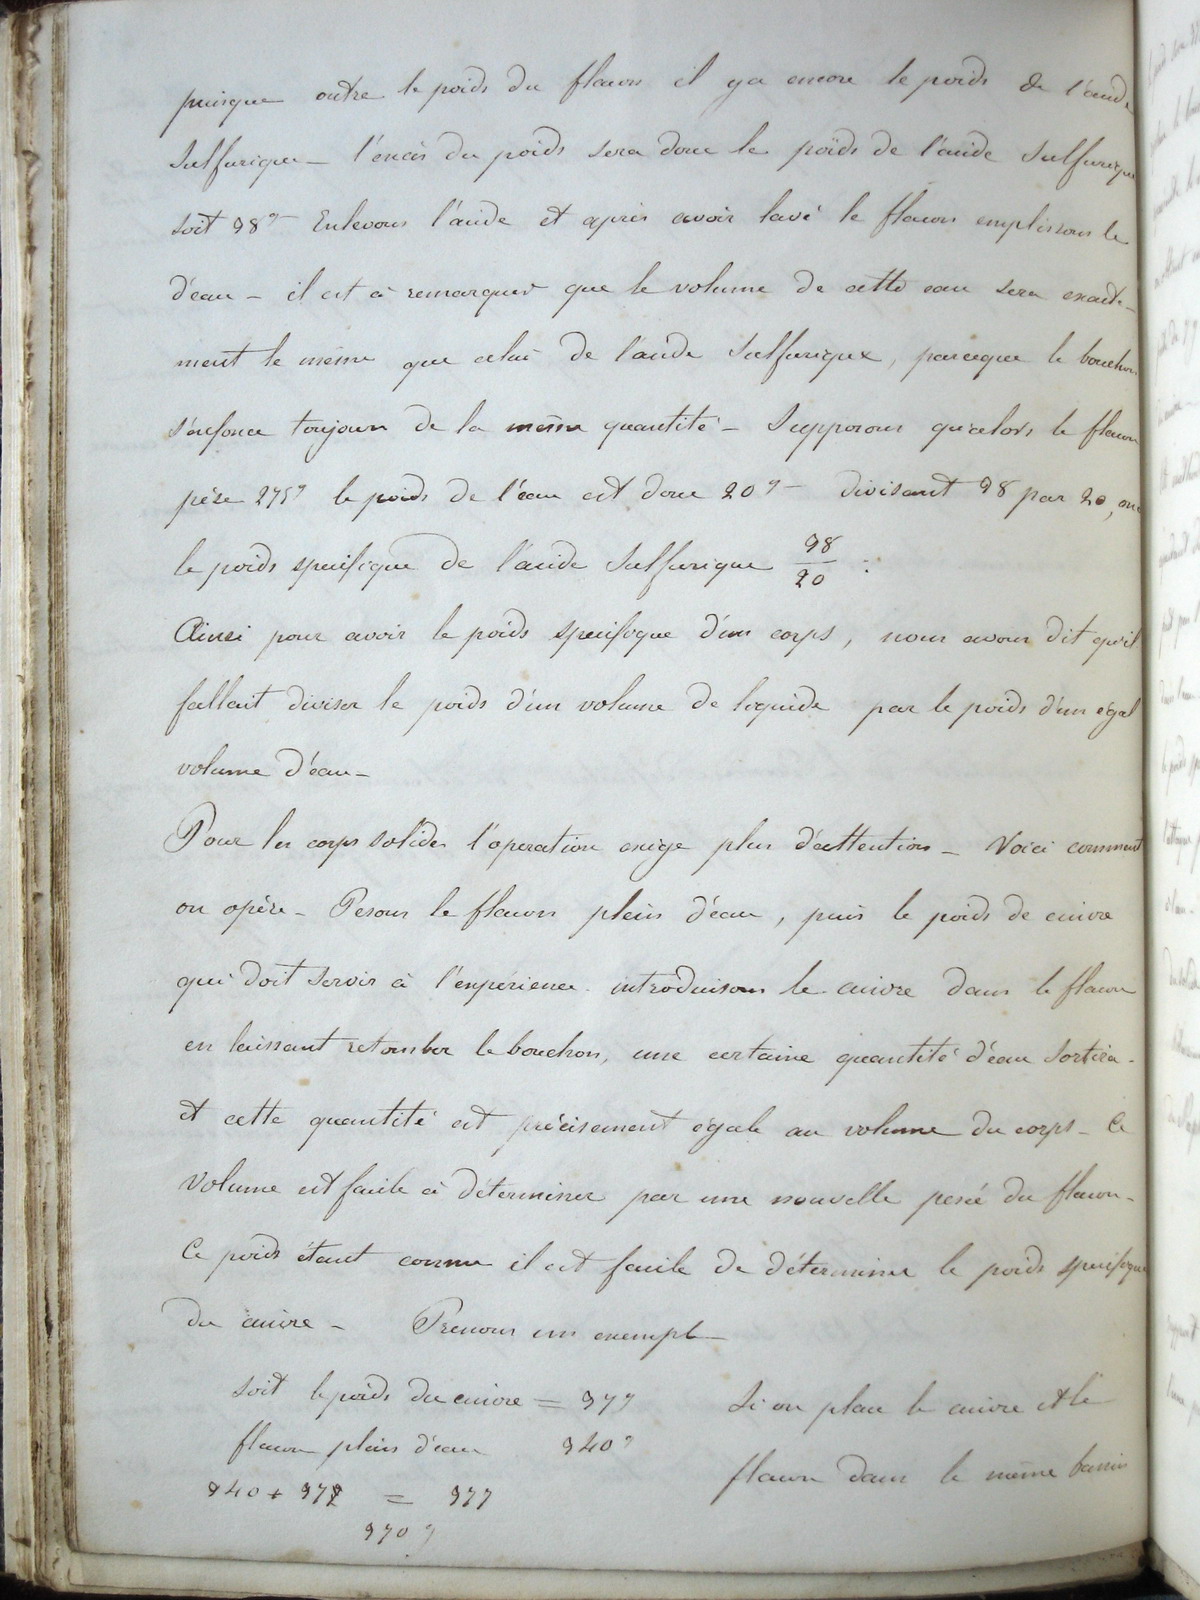 puisque outre le poids du flacon il y a encore le poids de l'acide
sulfurique – l'excès du poids sera donc le poids de l'acide sulfurique
soit 98g – Enlevons l'acide et après avoir lavé le flacon emplissons le
d'eau – il est à remarquer que le volume de cette eau sera exacte-
ment le même que celui de l'acide sulfurique, parceque le bouchon
s'enfonce toujours de la même quantité – Supposons qu'alors le flacon
pèse 275g le poids de l'eau est donc 20g – divisant 98 par 20, on a
le poids specifique de l'acide sulfurique 98/20 :
Ainsi pour avoir le poids specifique d'un corps, nous avons dit qu'il
fallait diviser le poids d'un volume de liquide par le poids d'un égal
volume d'eau –
Pour les corps solides l'operation exige plus d'attention – Voici comment
on opère – Pesons le flacon plein d'eau, puis le poids de cuivre
qui doit servir à l'expérience. introduisons le cuivre dans le flacon
en laissant retomber le bouchon, une certaine quantité d'eau sortira –
et cette quantité est précisement égale au volume du corps – Ce
volume est facile à déterminer par une nouvelle pesée du flacon –
Ce poids étant connu il est facile de déterminer le poids specifique
du cuivre – Prenons un exempl
soit le poids du cuivre = 37g Si on place le cuivre et le
flacon plein d'eau 340g
flacon dans le même bassin
340 + 37 = 377
370g